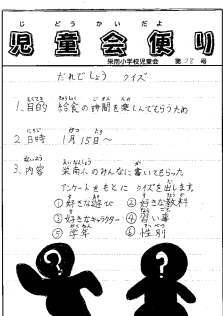 じどうかいだよ
児童会便り
栄南小学校児童会 第28号
だれでしょう クイズ
1.目的 給食の時間を楽しんでもらうため
2.日時 1月15日〜
3.内容 栄南小のみんなに書いてもらった
アンケートをもとに クイズを出します。
①好きな遊び ②好きな教科
③好きなキャラクター ④習い事
⑤学年 ⑥性別
? ?